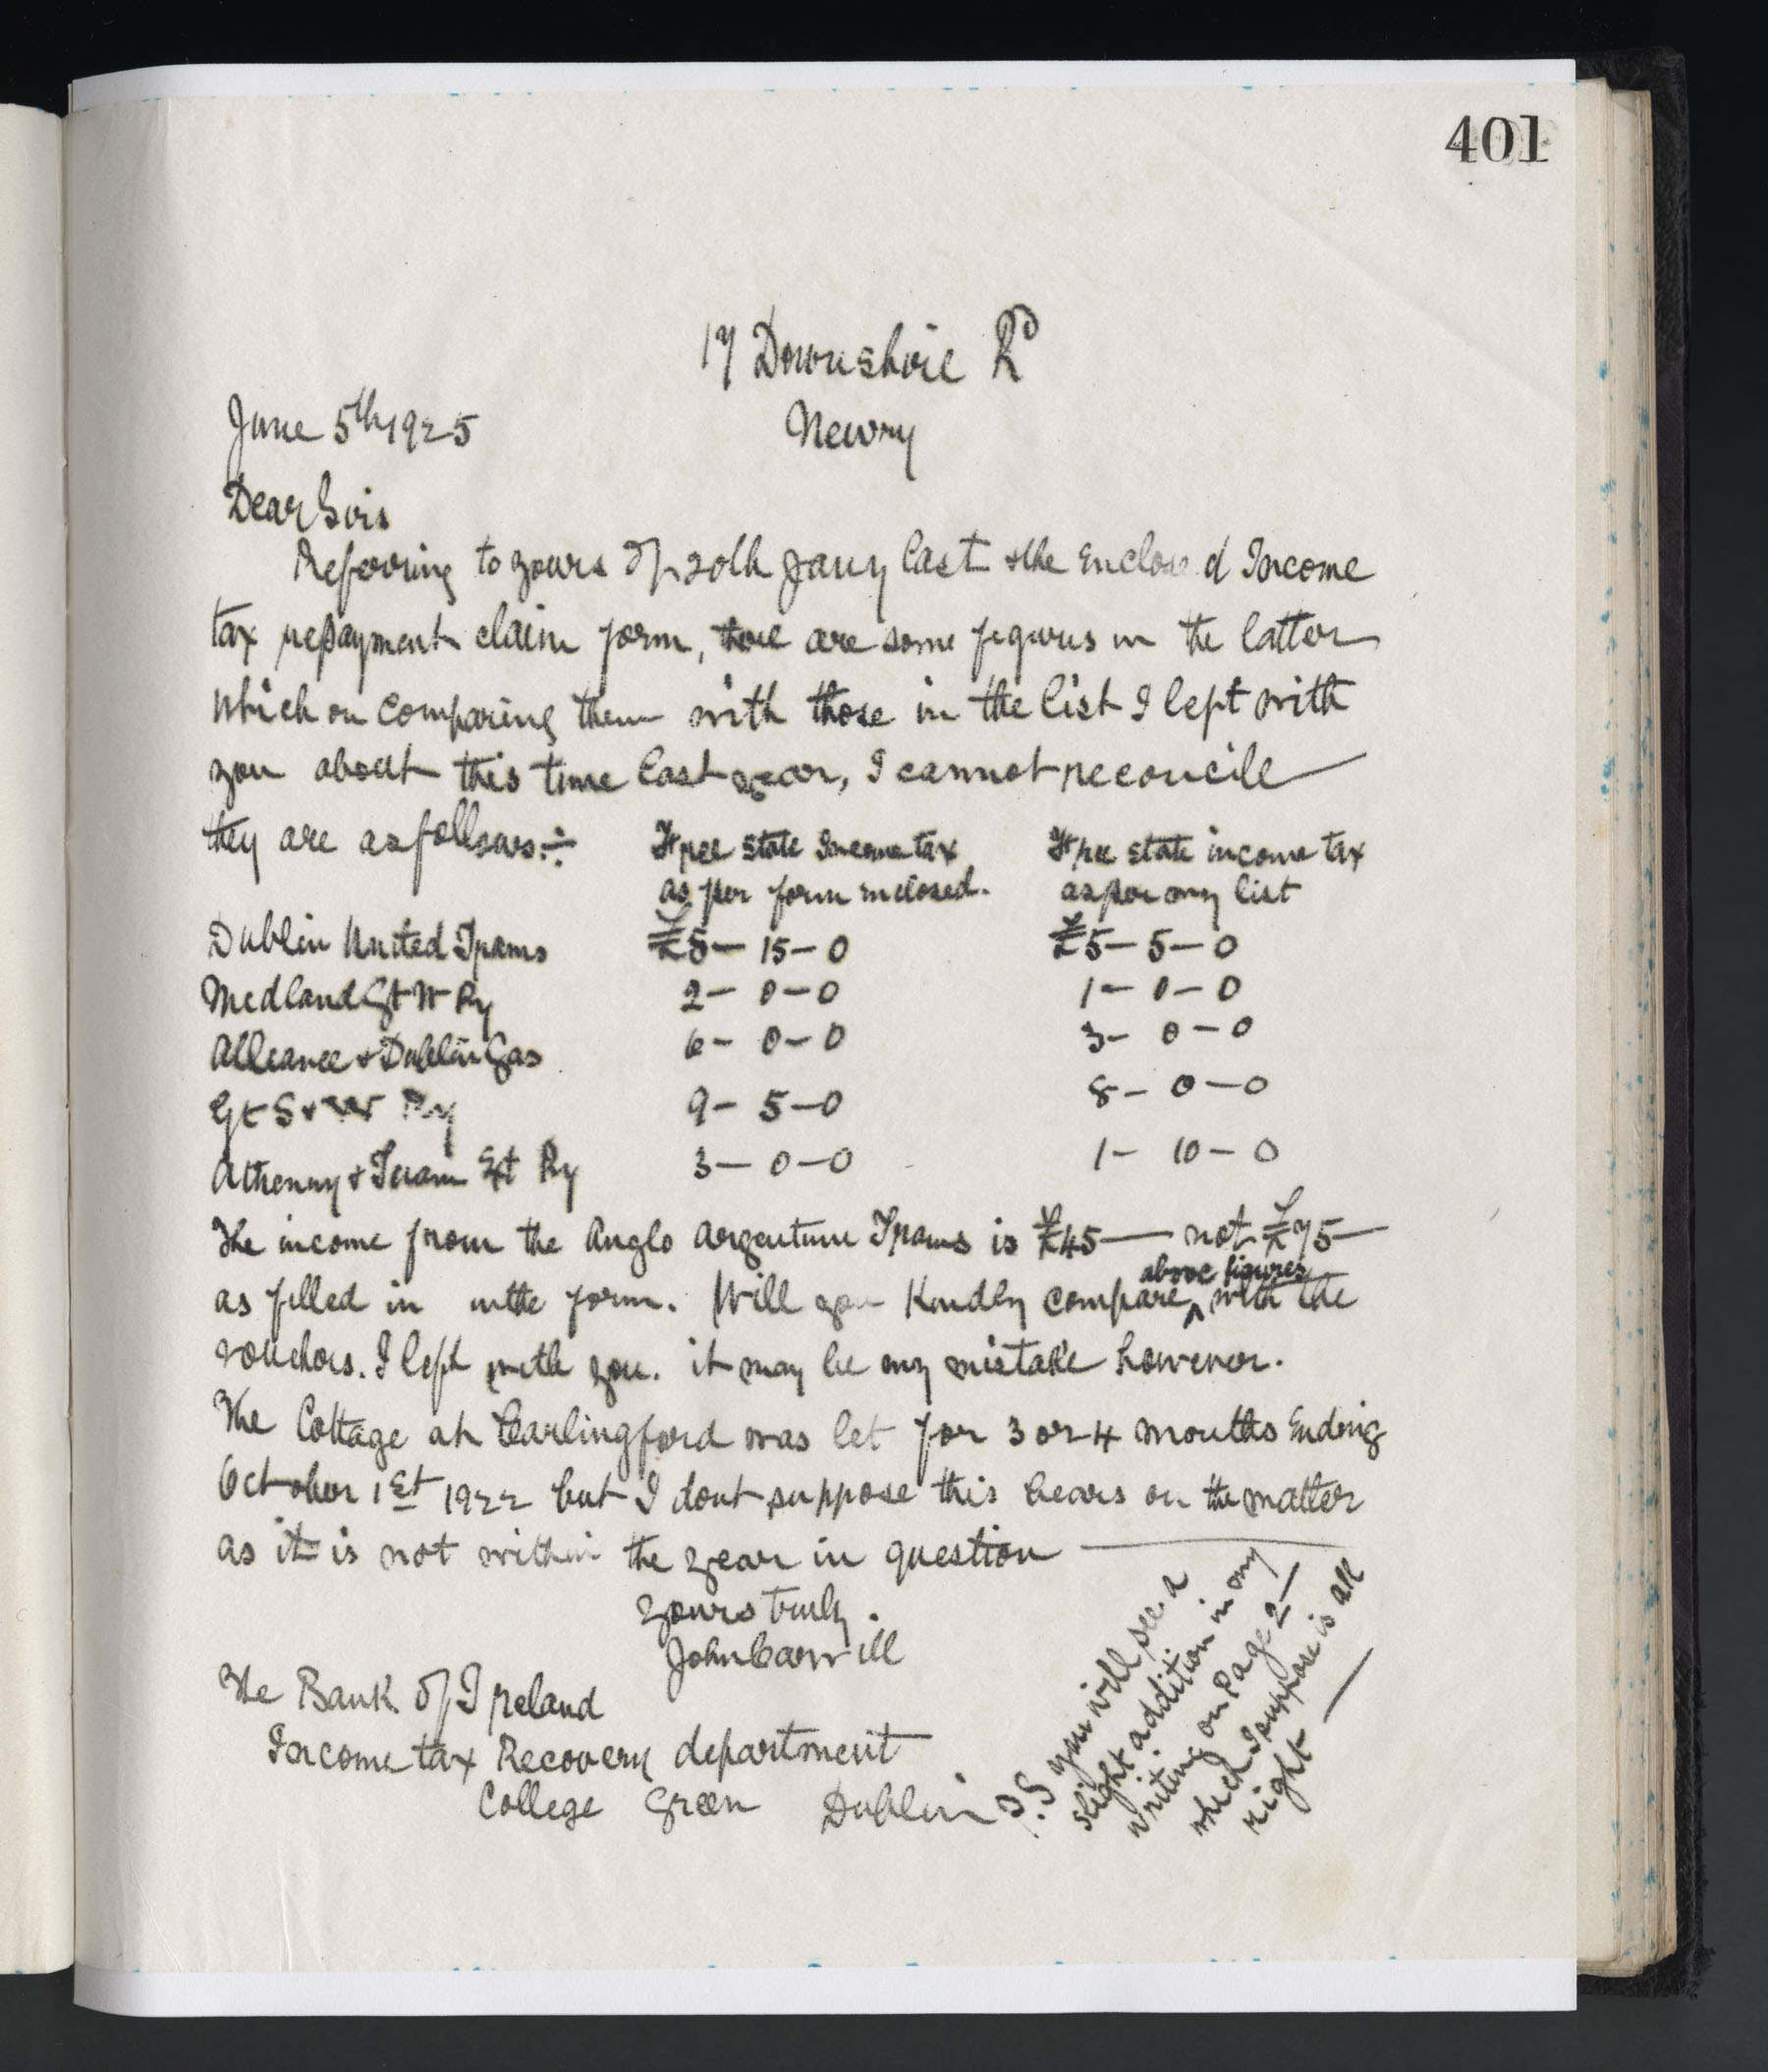 401
17 Downshire Rd
June 5th 1925 Newry
Dear Sirs
Referring to yours of 20th Jany last & the Enclosed Income
tax repayment claim form, there are some figures in the latter
which on comparing them with those in the list I left with
you about this time last year, I cannot reconcile
they are as follows:- Free State Income tax Free State income tax
as per form enclosed. as per my list
Dublin United Trams £5-15-0 £5-5-0
Midland Gt W Ry 2-0-0 1-0-0
Alliance & Dublin Gas 6-0-0 3-0-0
Gt S & W Ry 9-5-0 8-0-0
Athenry & Tuam Ext Ry 3-0-0 1-10-0
The income from the Anglo Argentine Trams is £45— not £75—
as filled in in the form. Will you Kindly compare above figures with the
vouchers. I left with you. it may be my mistake however.
The Cottage at Carlingford was let for 3 or 4 months Ending
October 1st 1922 but I dont suppose this bears on the matter
as it is not within the year in question —
yours truly.
John Carvill
The Bank of Ireland
Income tax Recovery department
College Green Dublin
P.S you will see a
slight addition in my
writing on Page 2—
which I suppose is all
right —